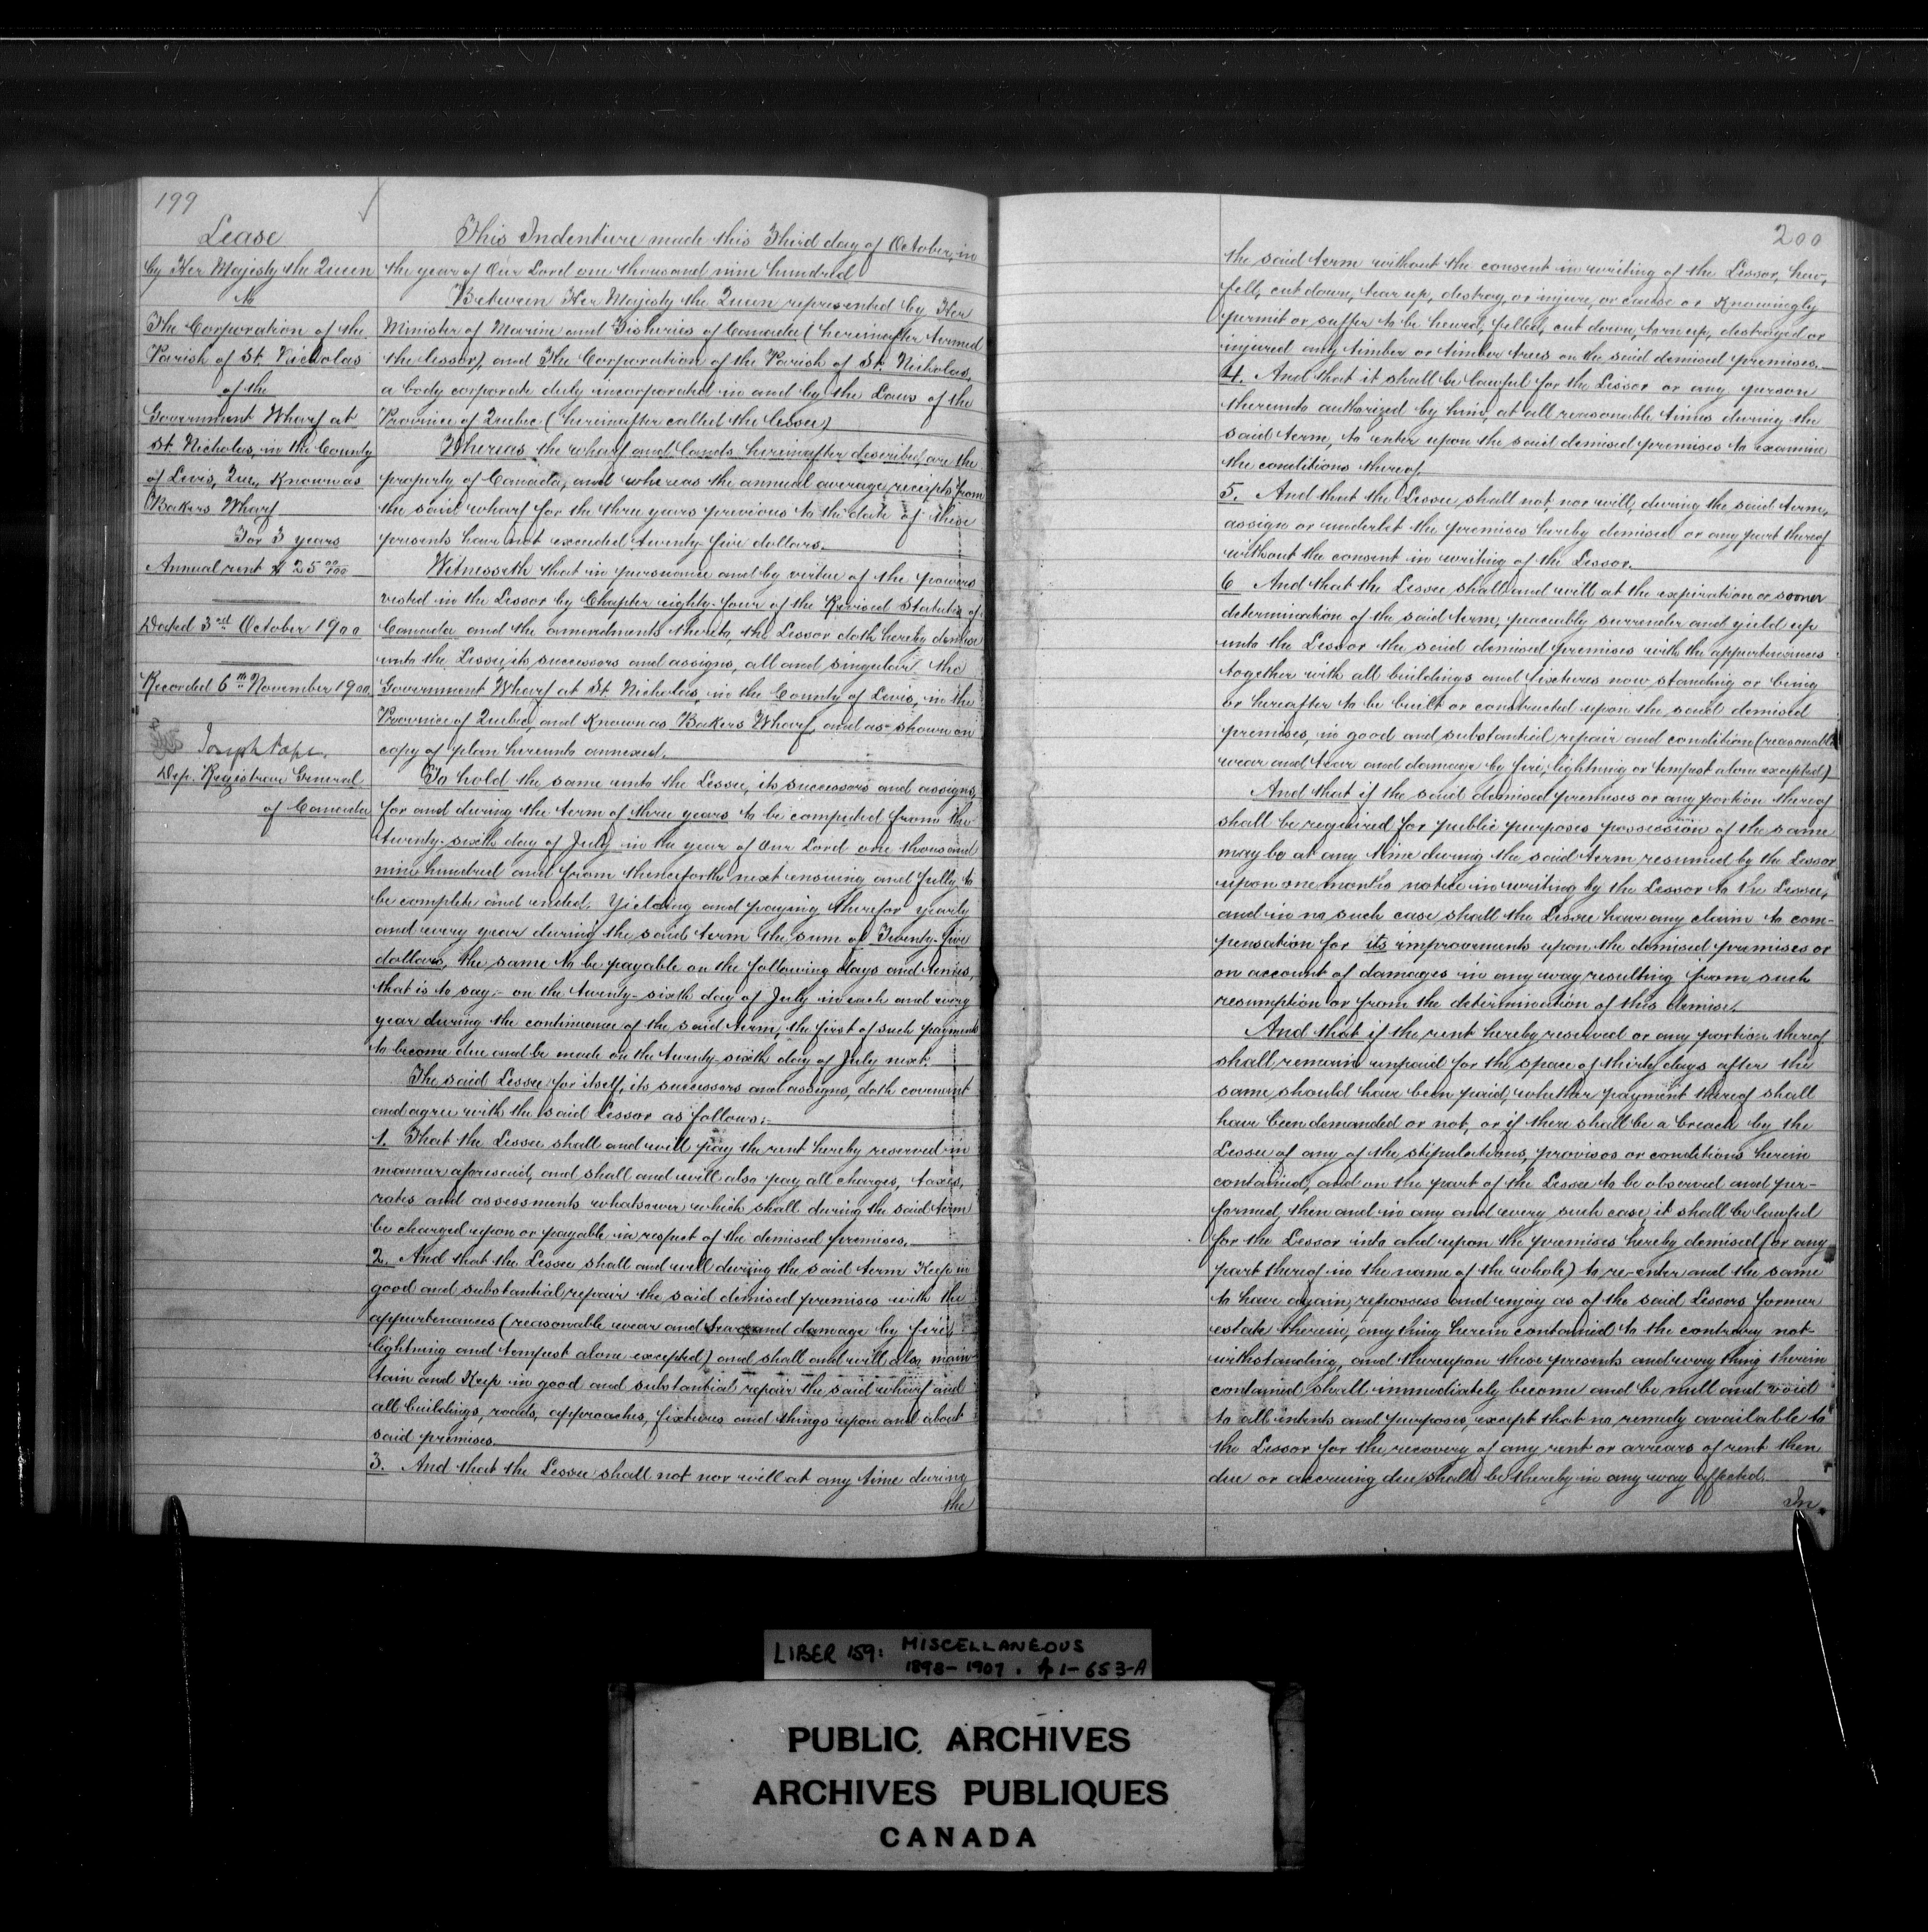 199
Lease
by Her Majesty the Queen
to
The Corporation of the
Parish of St. Nicholas
of the
Government Wharf at
St. Nicholas, in the County
of Levis, Que., Known as
Bakers Wharf
For 3 years
Annual rent $25 00/100
Dated 3rd October 1900
Recorded 6th November 1900
Joseph Pope.
Dep. Registrar General
of Canada
This Indenture made this Third day of October, in
the year of Our Lord one thousand nine hundred
Between Her Majesty the Queen represented by Her
Minister of Marine and Fisheries of Canada (hereinafter termed
the lessor), and The Corporation of the Parish of St. Nicholas,
a body corporate duly incorporated in and by the Laws of the
Province of Quebec (hereinafter called the lessee)
Whereas the wharf and lands hereinafter described, are the
property of Canada, and whereas the annual average receipts from
the said wharf for the three years previous to the date of these
presents have not exceeded twenty-five dollars.
Witnesseth that in pursuance and by virtue of the powers
vested in the Lessor by Chapter eighty-four of the Revised Statutes of
Canada and the amendments thereto, the Lessor doth hereby demise
unto the Lessee, its successors and assigns, all and singular the
Government Wharf at St. Nicholas, in the County of Levis, in the
Province of Quebec, and Known as Bakers Wharf, and as shown on
copy of plan hereunto annexed.
To hold the same unto the Lessee, its successors and assigns,
for and during the term of three years to be computed from the
twenty-sixth day of July in the year of Our Lord one thousand
nine hundred and from thenceforth next ensuing and fully to
be complete and ended. Yielding and paying therefor yearly
and every year during the said term the sum of Twenty-five
dollars, the same to be payable on the following days and times,
that is to say:- on the twenty-sixth day of July in each and every
year during the continuance of the said term, the first of such payments
to become due and be made on the twenty-sixth day of July next.
The said Lessee for itself, its successors and assigns, doth covenant
and agree with the said Lessor as follows:-
1. That the Lessee shall and will pay the rent hereby reserved in
manner aforesaid, and shall and will also pay all charges, taxes,
rates and assessments whatsoever which shall during the said term
be charged upon or payable in respect of the demised premises.
2. And that the Lessee shall and will during the said term Keep in
good and substantial repair the said demised premises with the
appurtenances (reasonable wear and tear and damage by fire,
lightning and tempest alone excepted) and shall and will also main-
tain and Keep in good and substantial repair the said wharf and
all buildings, roads, approaches, fixtures and things upon and about
said premises.
3. And that the Lessee shall not nor will at any time during
the
200
the said term without the consent in writing of the Lessor, hew,
fell, cut down, tear up, destroy, or injure, or cause or Knowingly
permit or suffer to be hewed, felled, cut down, torn up, destroyed or
injured any timber or timber trees on the said demised premises.
4. And that it shall be lawful for the Lessor or any person
thereunto authorized by him, at all reasonable times during the
said term, to enter upon the said demised premises to examine
the conditions thereof.
5. And that the Lessee shall not, nor will, during the said term,
assign or underlet the premises hereby demised or any part thereof
without the consent in writing of the Lessor.
6 And that the Lessee shall and will at the expiration or sooner
determination of the said term, peaceably surrender and yield up
unto the Lessor the said demised premises with the appurtenances
together with all buildings and fixtures now standing or being
or hereafter to be built or constructed upon the said demised
premises, in good and substantial repair and condition (reasonable
wear and tear and damage by fire, lightning or tempest alone excepted)
And that if the said demised premises or any portion thereof
shall be required for public purposes possession of the same
may be at any time during the said term resumed by the Lessor
upon one months notice in writing by the Lessor to the Lessee,
and in no such case shall the Lessee have any claim to com-
pensation for its improvements upon the demised premises or
on account of damages in any way resulting from such
resumption or from the determination of this demise.
And that if the rent hereby reserved or any portion thereof
shall remain unpaid for the space of thirty days after the
same should have been paid, whether payment thereof shall
have been demanded or not, or if there shall be a breach by the
Lessee of any of the stipulations, provisos or conditions herein
contained, and on the part of the Lessee to be observed and per-
formed, then and in any and every such case it shall be lawful
for the Lessor into and upon the premises hereby demised (or any
part thereof in the name of the whole) to re-enter and the same
to have again, repossess and enjoy as of the said Lessors former
estate therein, any thing herein contained to the contrary not-
withstanding, and thereupon these presents and every thing therein
contained shall immediately become and be null and void
to all intents and purposes, except that no remedy available to
the Lessor for the recovery of any rent or arrears of rent then
due or accruing due shall be thereby in any way affected.
In
LIBER 159: MISCELLANEOUS
1898-1907. p 1-653-A
PUBLIC ARCHIVES
ARCHIVES PUBLIQUES
CANADA